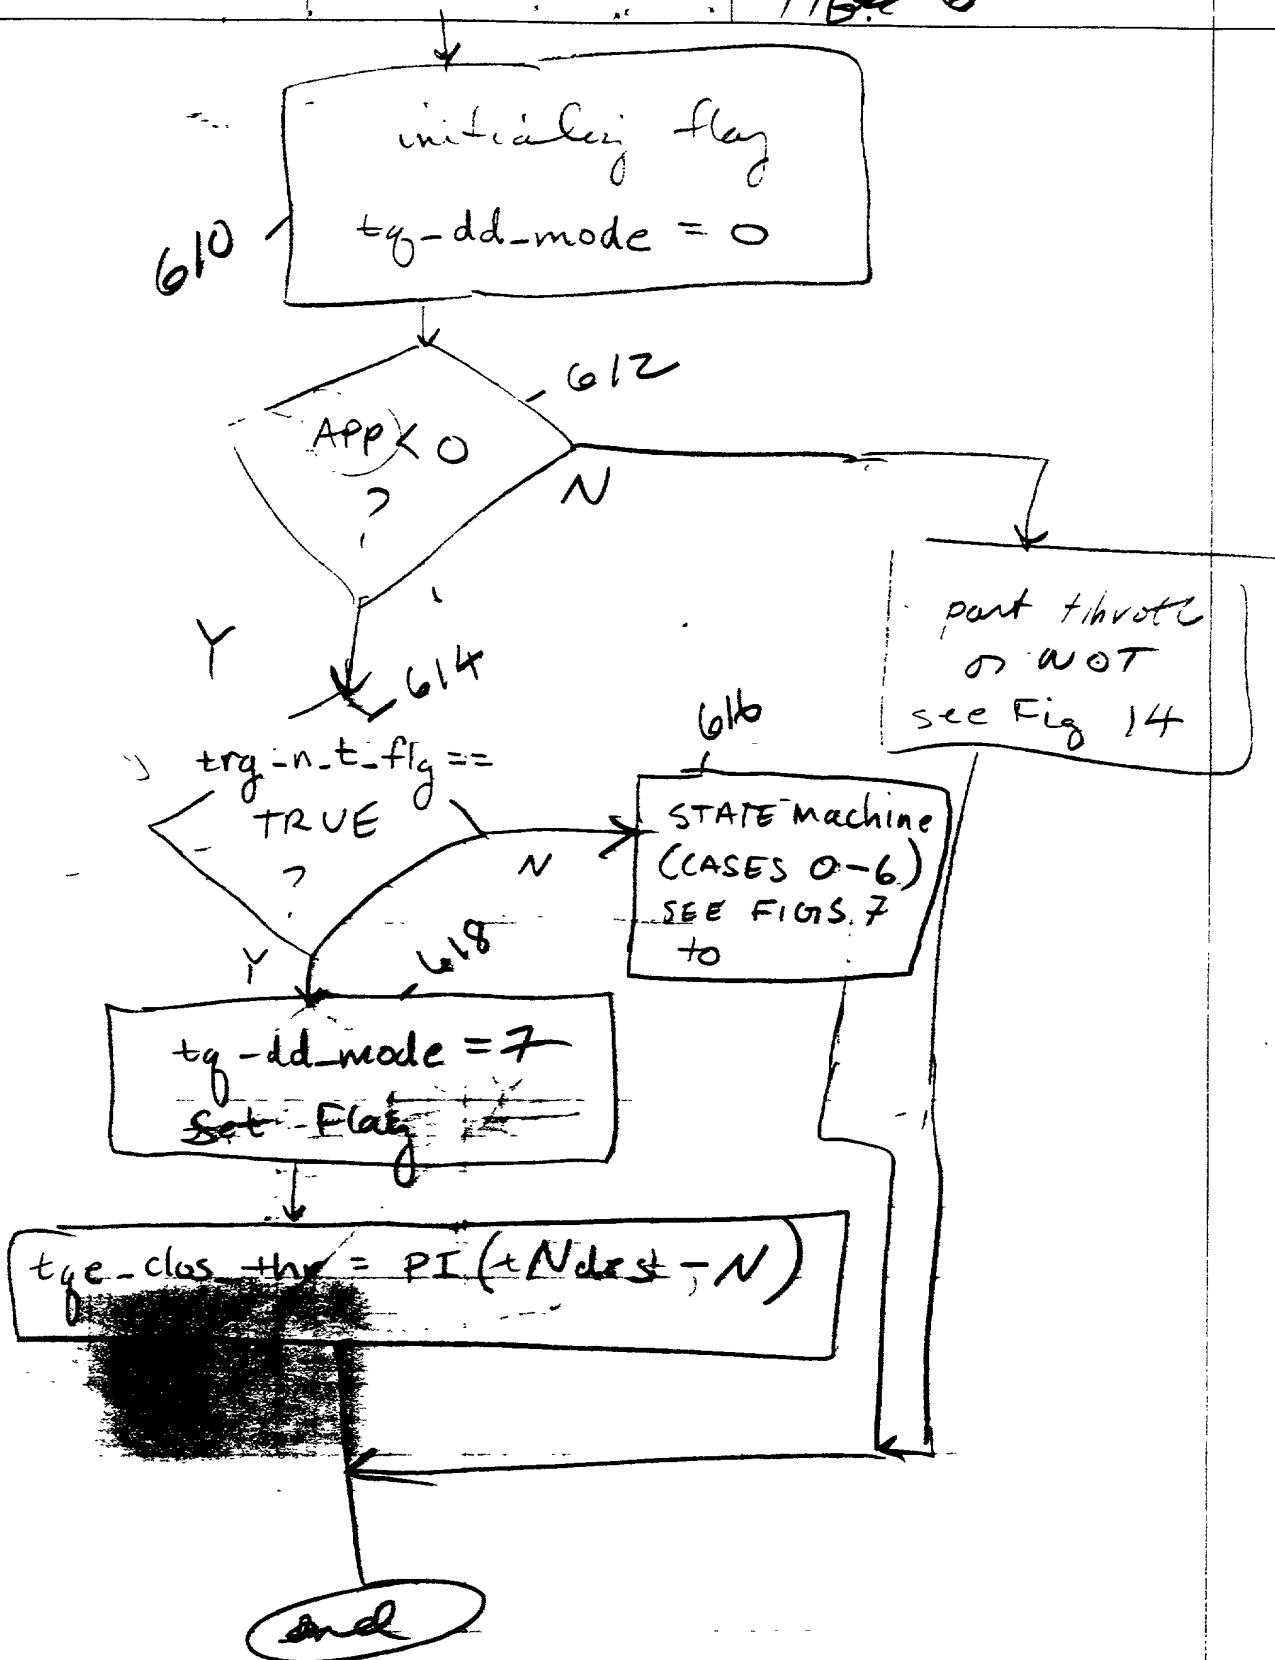 initializing flag
tq_dd_mode = 0
610
612
APP < 0
?
N
Y
part thrott
or WOT
see Fig 14
614
trg_n_t_flg ==
TRUE
?
N
Y
616
STATE Machine
(CASES 0-6)
SEE FIGS. 7
to
618
tq_dd_mode = 7
Set Flag
tqe_clos_thr = PI (tNdest - N)
end